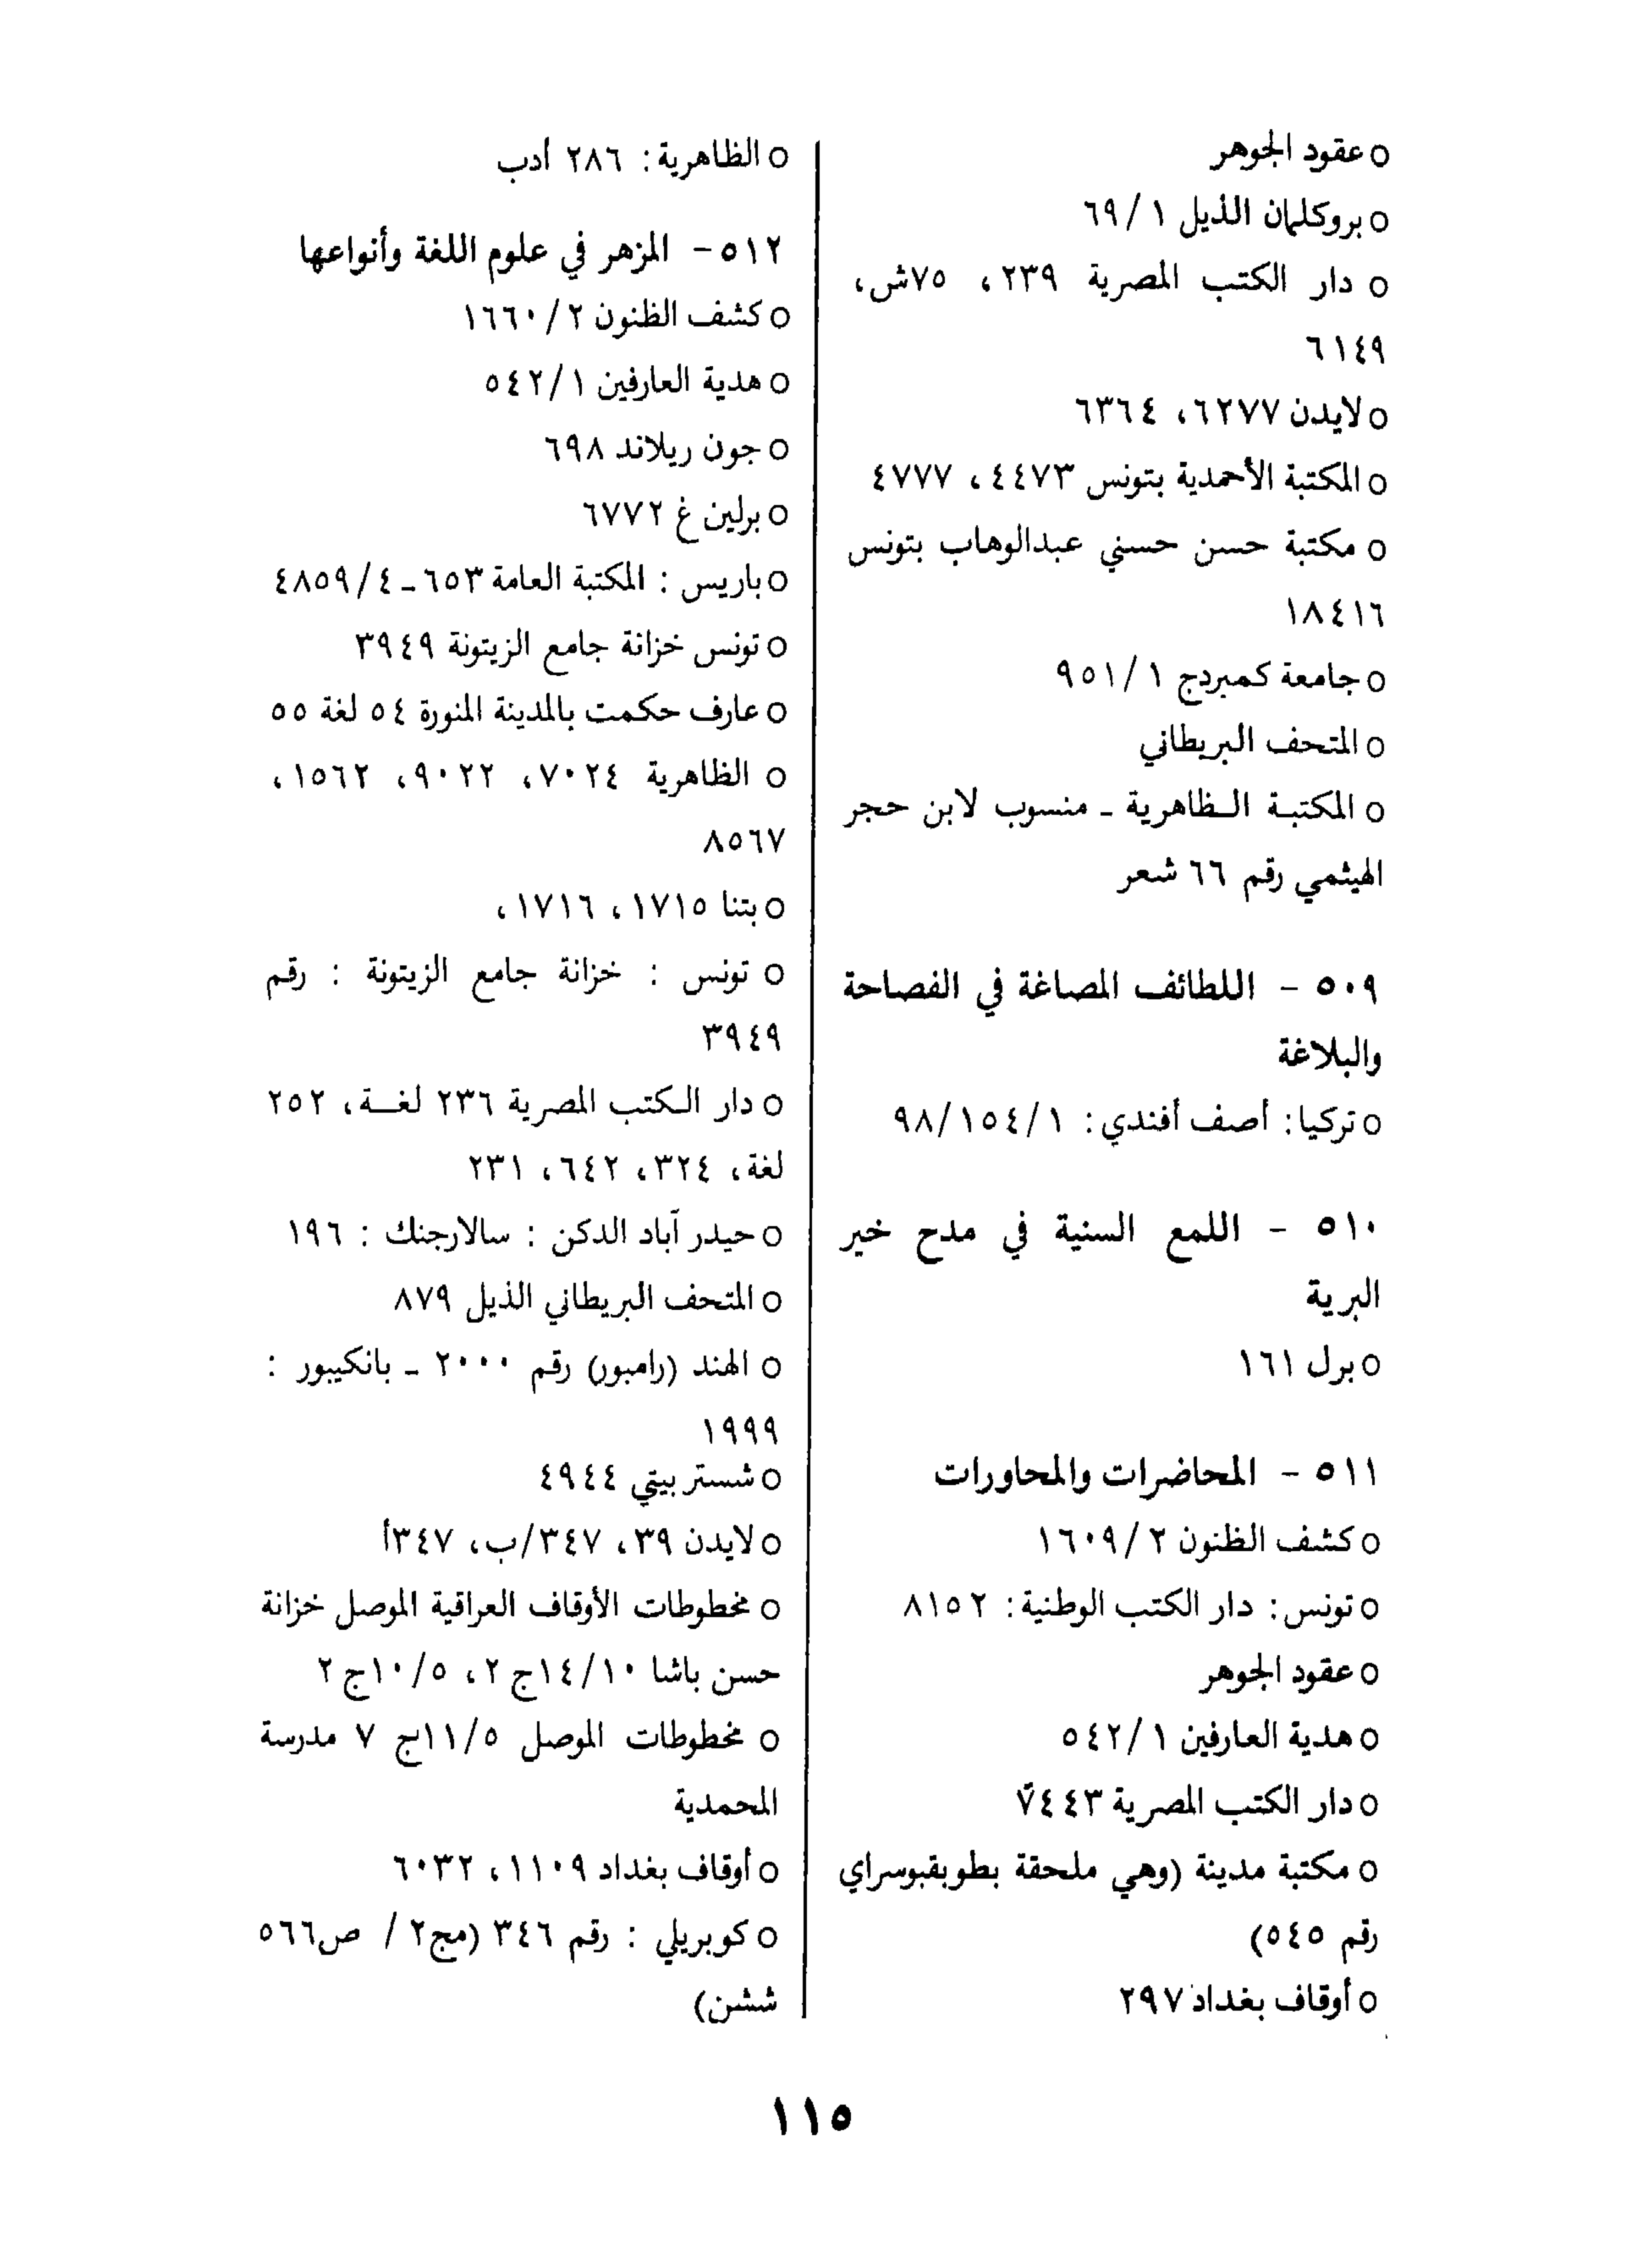 ○ عقود الجوهر
○ بروكلمان الذيل ١/ ٦٩
○ دار الكتب المصرية ٢٣٩، ٧٥ش،
٦١٤٩
○ لايدن ٦٢٧٧، ٦٣٦٤
○ المكتبة الأحمدية بتونس ٤٤٧٣، ٤٧٧٧
○ مكتبة حسن حسني عبدالوهاب بتونس
١٨٤١٦
○ جامعة كمبردج ١/ ٩٥١
○ المتحف البريطاني
○ المكتبة الظاهرية ـ منسوب لابن حجر
الهيثمي رقم ٦٦ شعر
٥٠٩ - اللطائف المصاغة في الفصاحة
والبلاغة
○ تركيا: أصف أفندي: ١/ ١٥٤/ ٩٨
٥١٠ - اللمع السنية في مدح خير
البرية
○ برل ١٦١
٥١١ - المحاضرات والمحاورات
○ كشف الظنون ٢/ ١٦٠٩
○ تونس: دار الكتب الوطنية: ٨١٥٢
○ عقود الجوهر
○ هدية العارفين ١/ ٥٤٢
○ دار الكتب المصرية ٧٤٤٣
○ مكتبة مدينة (وهي ملحقة بطوبقبوسراي
رقم ٥٤٥)
○ أوقاف بغداد ٢٩٧
○ الظاهرية: ٢٨٦ أدب
٥١٢ - المزهر في علوم اللغة وأنواعها
○ كشف الظنون ٢/ ١٦٦٠
○ هدية العارفين ١/ ٥٤٢
○ جون ريلاند ٦٩٨
○ برلين غ ٦٧٧٢
○ باريس : المكتبة العامة ٦٥٣ ـ ٤/ ٤٨٥٩
○ تونس خزانة جامع الزيتونة ٣٩٤٩
○ عارف حكمت بالمدينة المنورة ٥٤ لغة ٥٥
○ الظاهرية ٧٠٢٤، ٩٠٢٢، ١٥٦٢،
٨٥٦٧
○ بتنا ١٧١٥، ١٧١٦،
○ تونس : خزانة جامع الزيتونة : رقم
٣٩٤٩
○ دار الكتب المصرية ٢٣٦ لغة، ٢٥٢
لغة، ٣٢٤، ٦٤٢، ٢٣١
○ حيدر آباد الدكن : سالارجنك : ١٩٦
○ المتحف البريطاني الذيل ٨٧٩
○ الهند (رامبور) رقم ٢٠٠٠ ـ بانكيبور :
١٩٩٩
○ شستر بيتي ٤٩٤٤
○ لايدن ٣٩، ٣٤٧/ب، ٣٤٧أ
○ مخطوطات الأوقاف العراقية الموصل خزانة
حسن باشا ١٤/١٠ج ٢، ١٠/٥ج ٢
○ مخطوطات الموصل ١١/٥ج ٧ مدرسة
المحمدية
○ أوقاف بغداد ١١٠٩، ٦٠٣٢
○ كوبريلي : رقم ٣٤٦ (مج٢ / ص٥٦٦
ششن)
١١٥